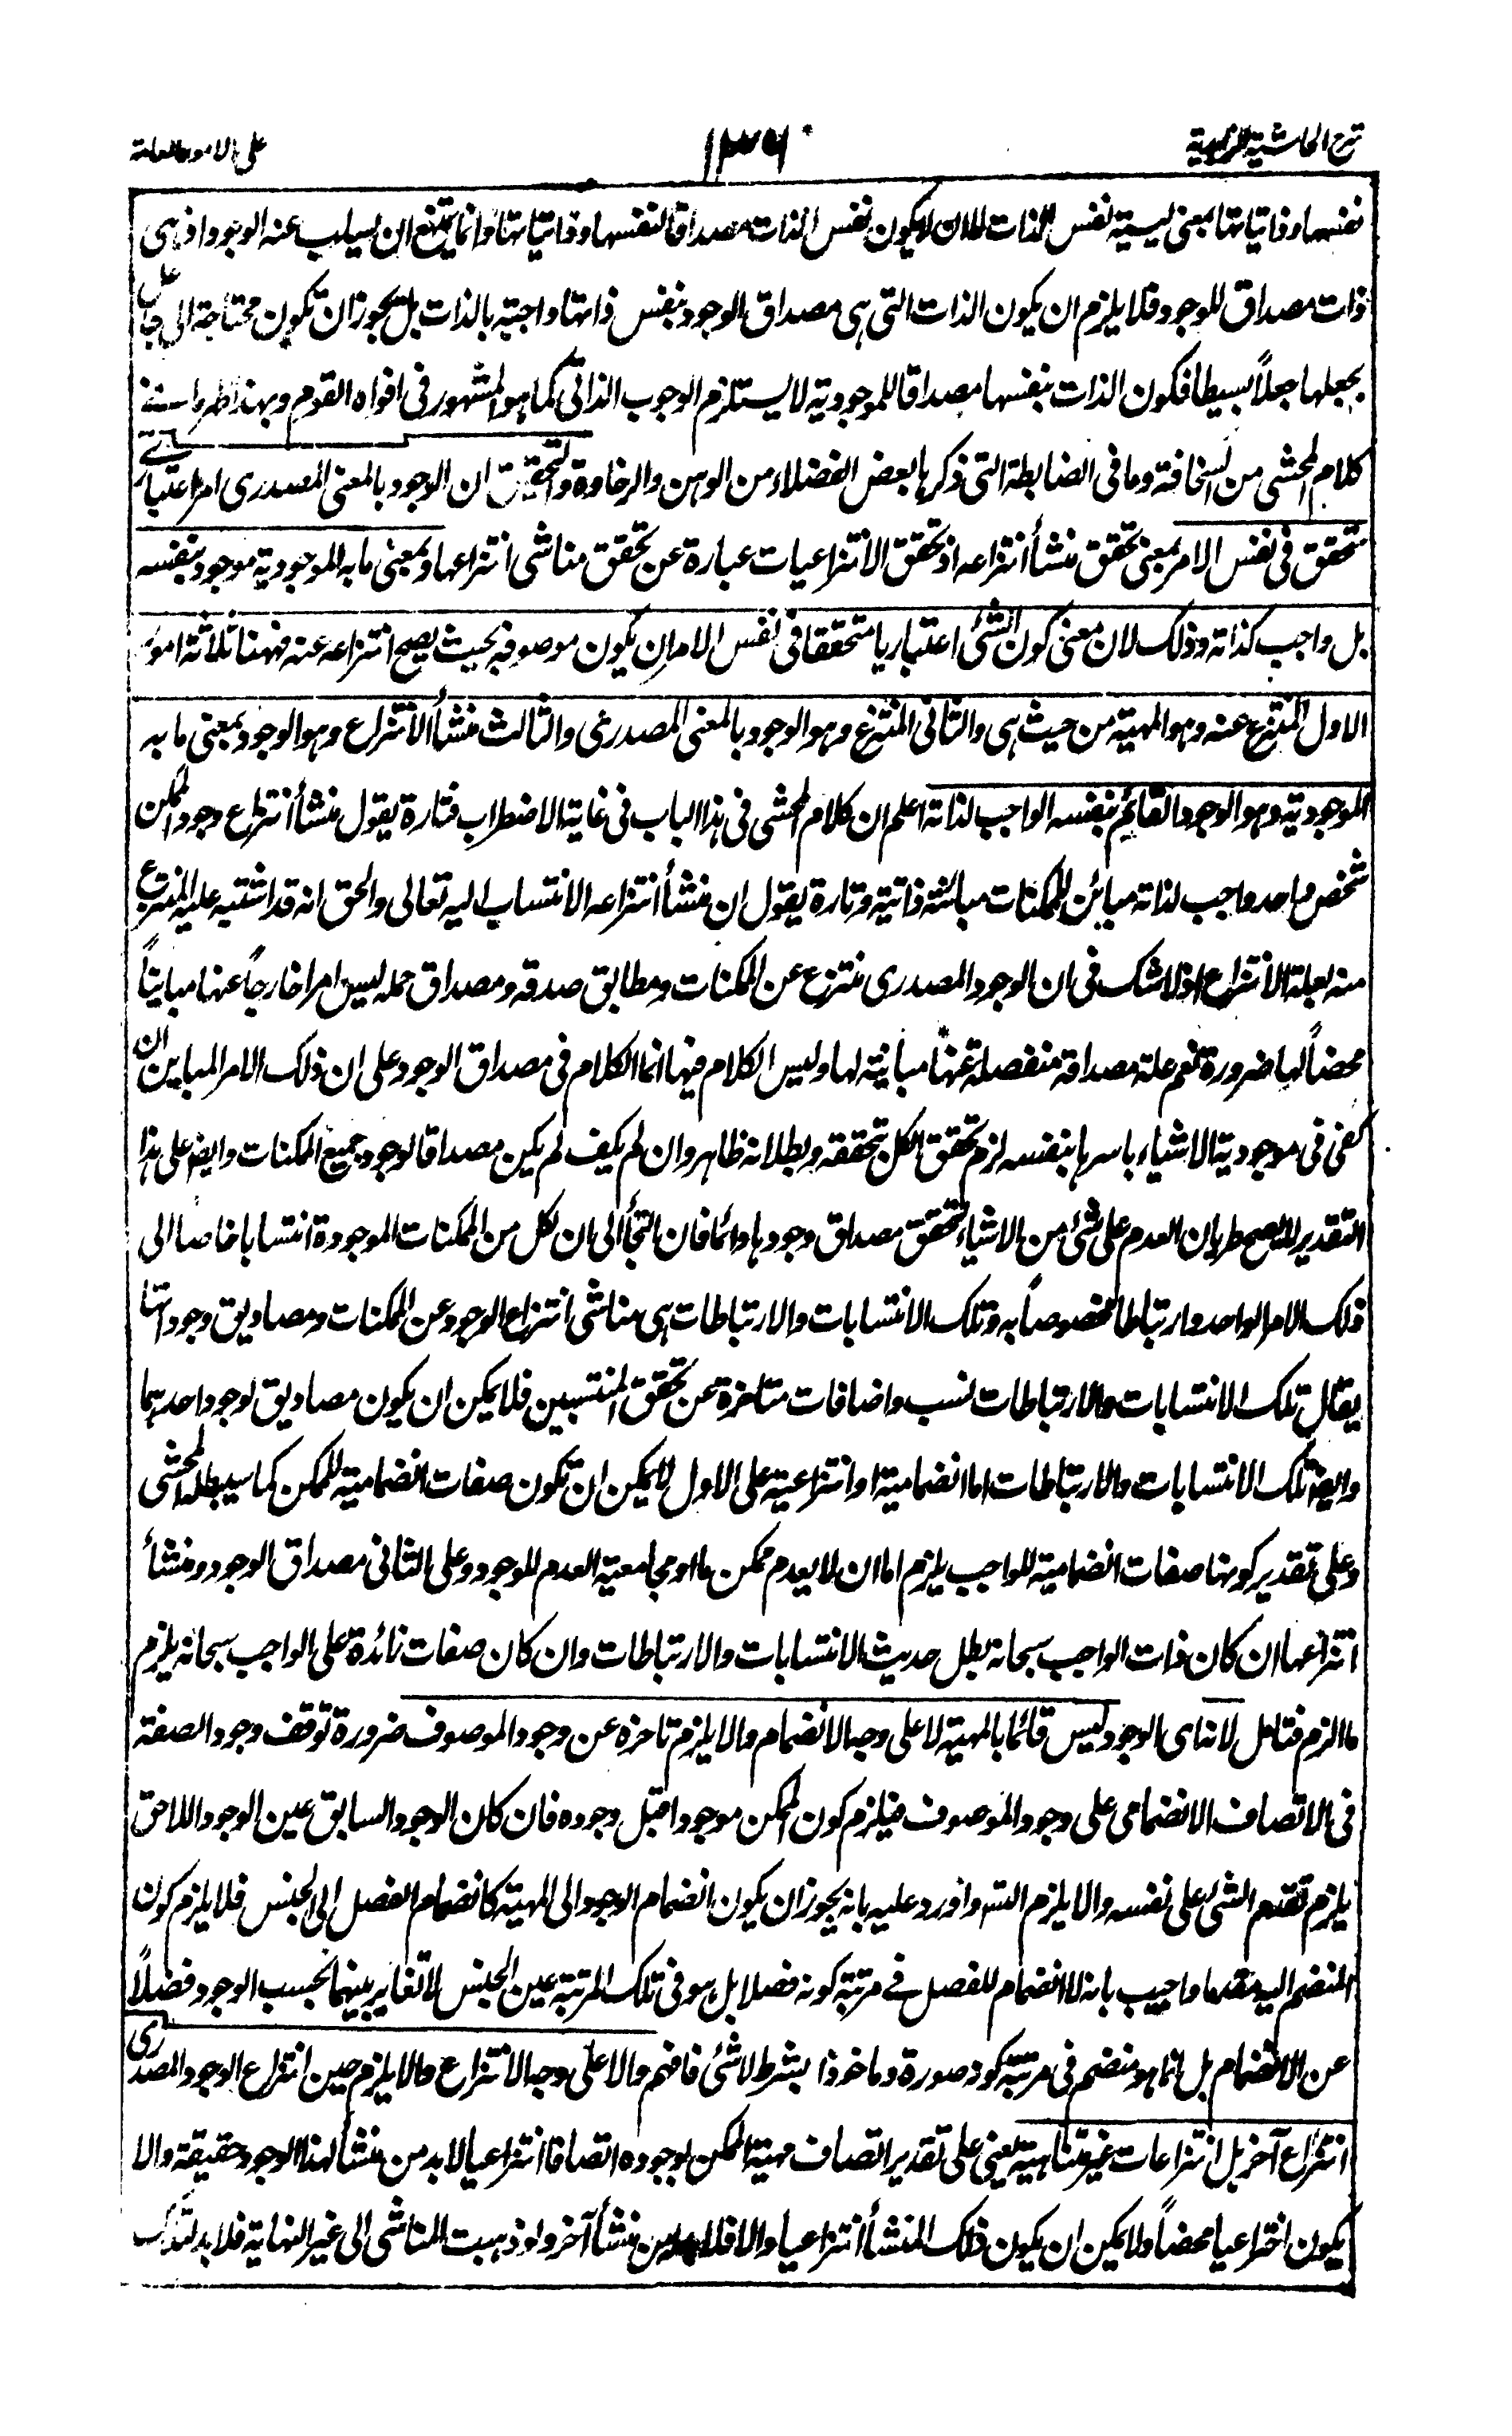 شرح الحاشية الزاهدية
١٣٦
على الامور العامة
نفسها وذاتياتها بمعنى ليسية نفس الذات لا لان لا يكون نفس الذات مصداقا لنفسها وذاتياتها وانما يمتنع ان يسلب عنه الوجود اذ هى
ذات مصداق للوجود فلا يلزم ان يكون الذات التى هى مصداق الوجود بنفس ذاتها واجبة بالذات بل يجوز ان تكون محتاجة الى جاعل
يجعلها جعلاً بسيطا فكون الذات بنفسها مصداقا للموجودية لا يستلزم الوجوب الذاتى كما هو المشهور فى افواه القوم وبهذا ظهر ما فے
كلام المحشى من السخافة وما فى الضابطة التى ذكرها بعض الفضلاء من الوهن والرخاوة والتحقيق ان الوجود بالمعنى المصدرى امر اعتبارے
متحقق فى نفس الامر بمعنى تحقق منشأ انتزاعه اذ تحقق الانتزاعيات عبارة عن تحقق مناشى انتزاعها وبمعنى ما به الموجودية موجود بنفسه
بل واجب كذاته وذلك لان معنى كون الشئ اعتباريا متحققا فى نفس الامر ان يكون موصوفه بحيث يصح انتزاعه عنه فههنا ثلاثة امور
الاول المنتزع عنه وهو المهية من حيث هى والثانى المنتزع وهو الوجود بالمعنى المصدرى والثالث منشأ الانتزاع وهو الوجود بمعنى ما به
الموجودية وهو الوجود القائم بنفسه الواجب لذاته اعلم ان كلام المحشى فى هذا الباب فى غاية الاضطراب فتارة يقول منشأ انتزاع وجود الممكن
شخص واحد واجب لذاته مبائن للممكنات مبائنة ذاتية وتارة يقول ان منشأ انتزاعه الانتساب اليه تعالى والحق انه قد اشتبه عليه المنتزع
منه بعلة الانتزاع اذ لا شك فى ان الوجود المصدرى منتزع عن الممكنات ومطابق صدقه ومصداق حمله ليس امرا خارجاً عنها مبايناً
محضاً لها ضرورة نعم علة مصداقه منفصلة عنها مباينة لها وليس الكلام فيها انما الكلام فى مصداق الوجود على ان ذلك الامر المباين ان
كفى فى موجودية الاشياء باسرها بنفسه لزم تحقق الكل بتحققه وبطلانه ظاهر وان لم يكف لم يكن مصداقا لوجود جميع الممكنات وايضا على هذا
التقدير لا يصح طريان العدم على شئ من الاشياء لتحقق مصداق وجودها دائما فان التجأ الى ان لكل من الممكنات الموجودة انتسابا خاصا الى
ذلك الامر الواحد وارتباطا مخصوصاً به وتلك الانتسابات والارتباطات هى مناشى انتزاع الوجود عن الممكنات ومصاديق وجوداتها
يقال تلك الانتسابات والارتباطات نسب واضافات متاخرة عن تحقق المنتسبين فلا يمكن ان يكون مصاديق لوجود احدهما
وايضا تلك الانتسابات والارتباطات اما انضمامية او انتزاعية على الاول لا يمكن ان تكون صفات انضمامية للممكن كما سيبطله المحشى
وعلى تقدير كونها صفات انضمامية للواجب يلزم اما ان لا يعدم ممكن ما او مجامعية العدم للوجود وعلى الثانى مصداق الوجود ومنشأ
انتزاعها ان كان ذات الواجب سبحانه بطل حديث الانتسابات والارتباطات وان كان صفات زائدة على الواجب سبحانه يلزم
ما الزم فتامل لانه اى الوجود ليس قائما بالمهية لا على وجه الانضمام والا يلزم تاخره عن وجود الموصوف ضرورة توقف وجود الصفة
فى الاتصاف الانضمامى على وجود الموصوف فيلزم كون الممكن موجودا قبل وجوده فان كان الوجود السابق عين الوجود اللاحق
يلزم تقدم الشئ على نفسه والا يلزم التسـ واورد عليه بانه يجوز ان يكون انضمام الوجود الى المهية كانضمام الفصل الى الجنس فلا يلزم كون
المنضم اليه مقدما واجيب بانه لا انضمام للفصل فے مرتبة كونه فصلا بل هو فى تلك المرتبة عين الجنس لا تغاير بينهما بحسب الوجود فضلاً
عن الانضمام بل انما هو منضم فى مرتبة كونه صورة وماخوذا بشرط لا شئ فافهم ولا على وجه الانتزاع والا يلزم حين انتزاع الوجود المصدرى
انتزاع آخر بل انتزاعات غير متناهية يعنى على تقدير اتصاف مهية الممكن بوجوده اتصافا انتزاعيا لا بد من منشأ لهذا الوجود حقيقة والا
يكون اختراعيا محضاً ولا يمكن ان يكون ذلك المنشأ انتزاعيا والا فلا بد من منشأ آخر ولو ذهبت المناشى الى غير النهاية فلا بد لتلك